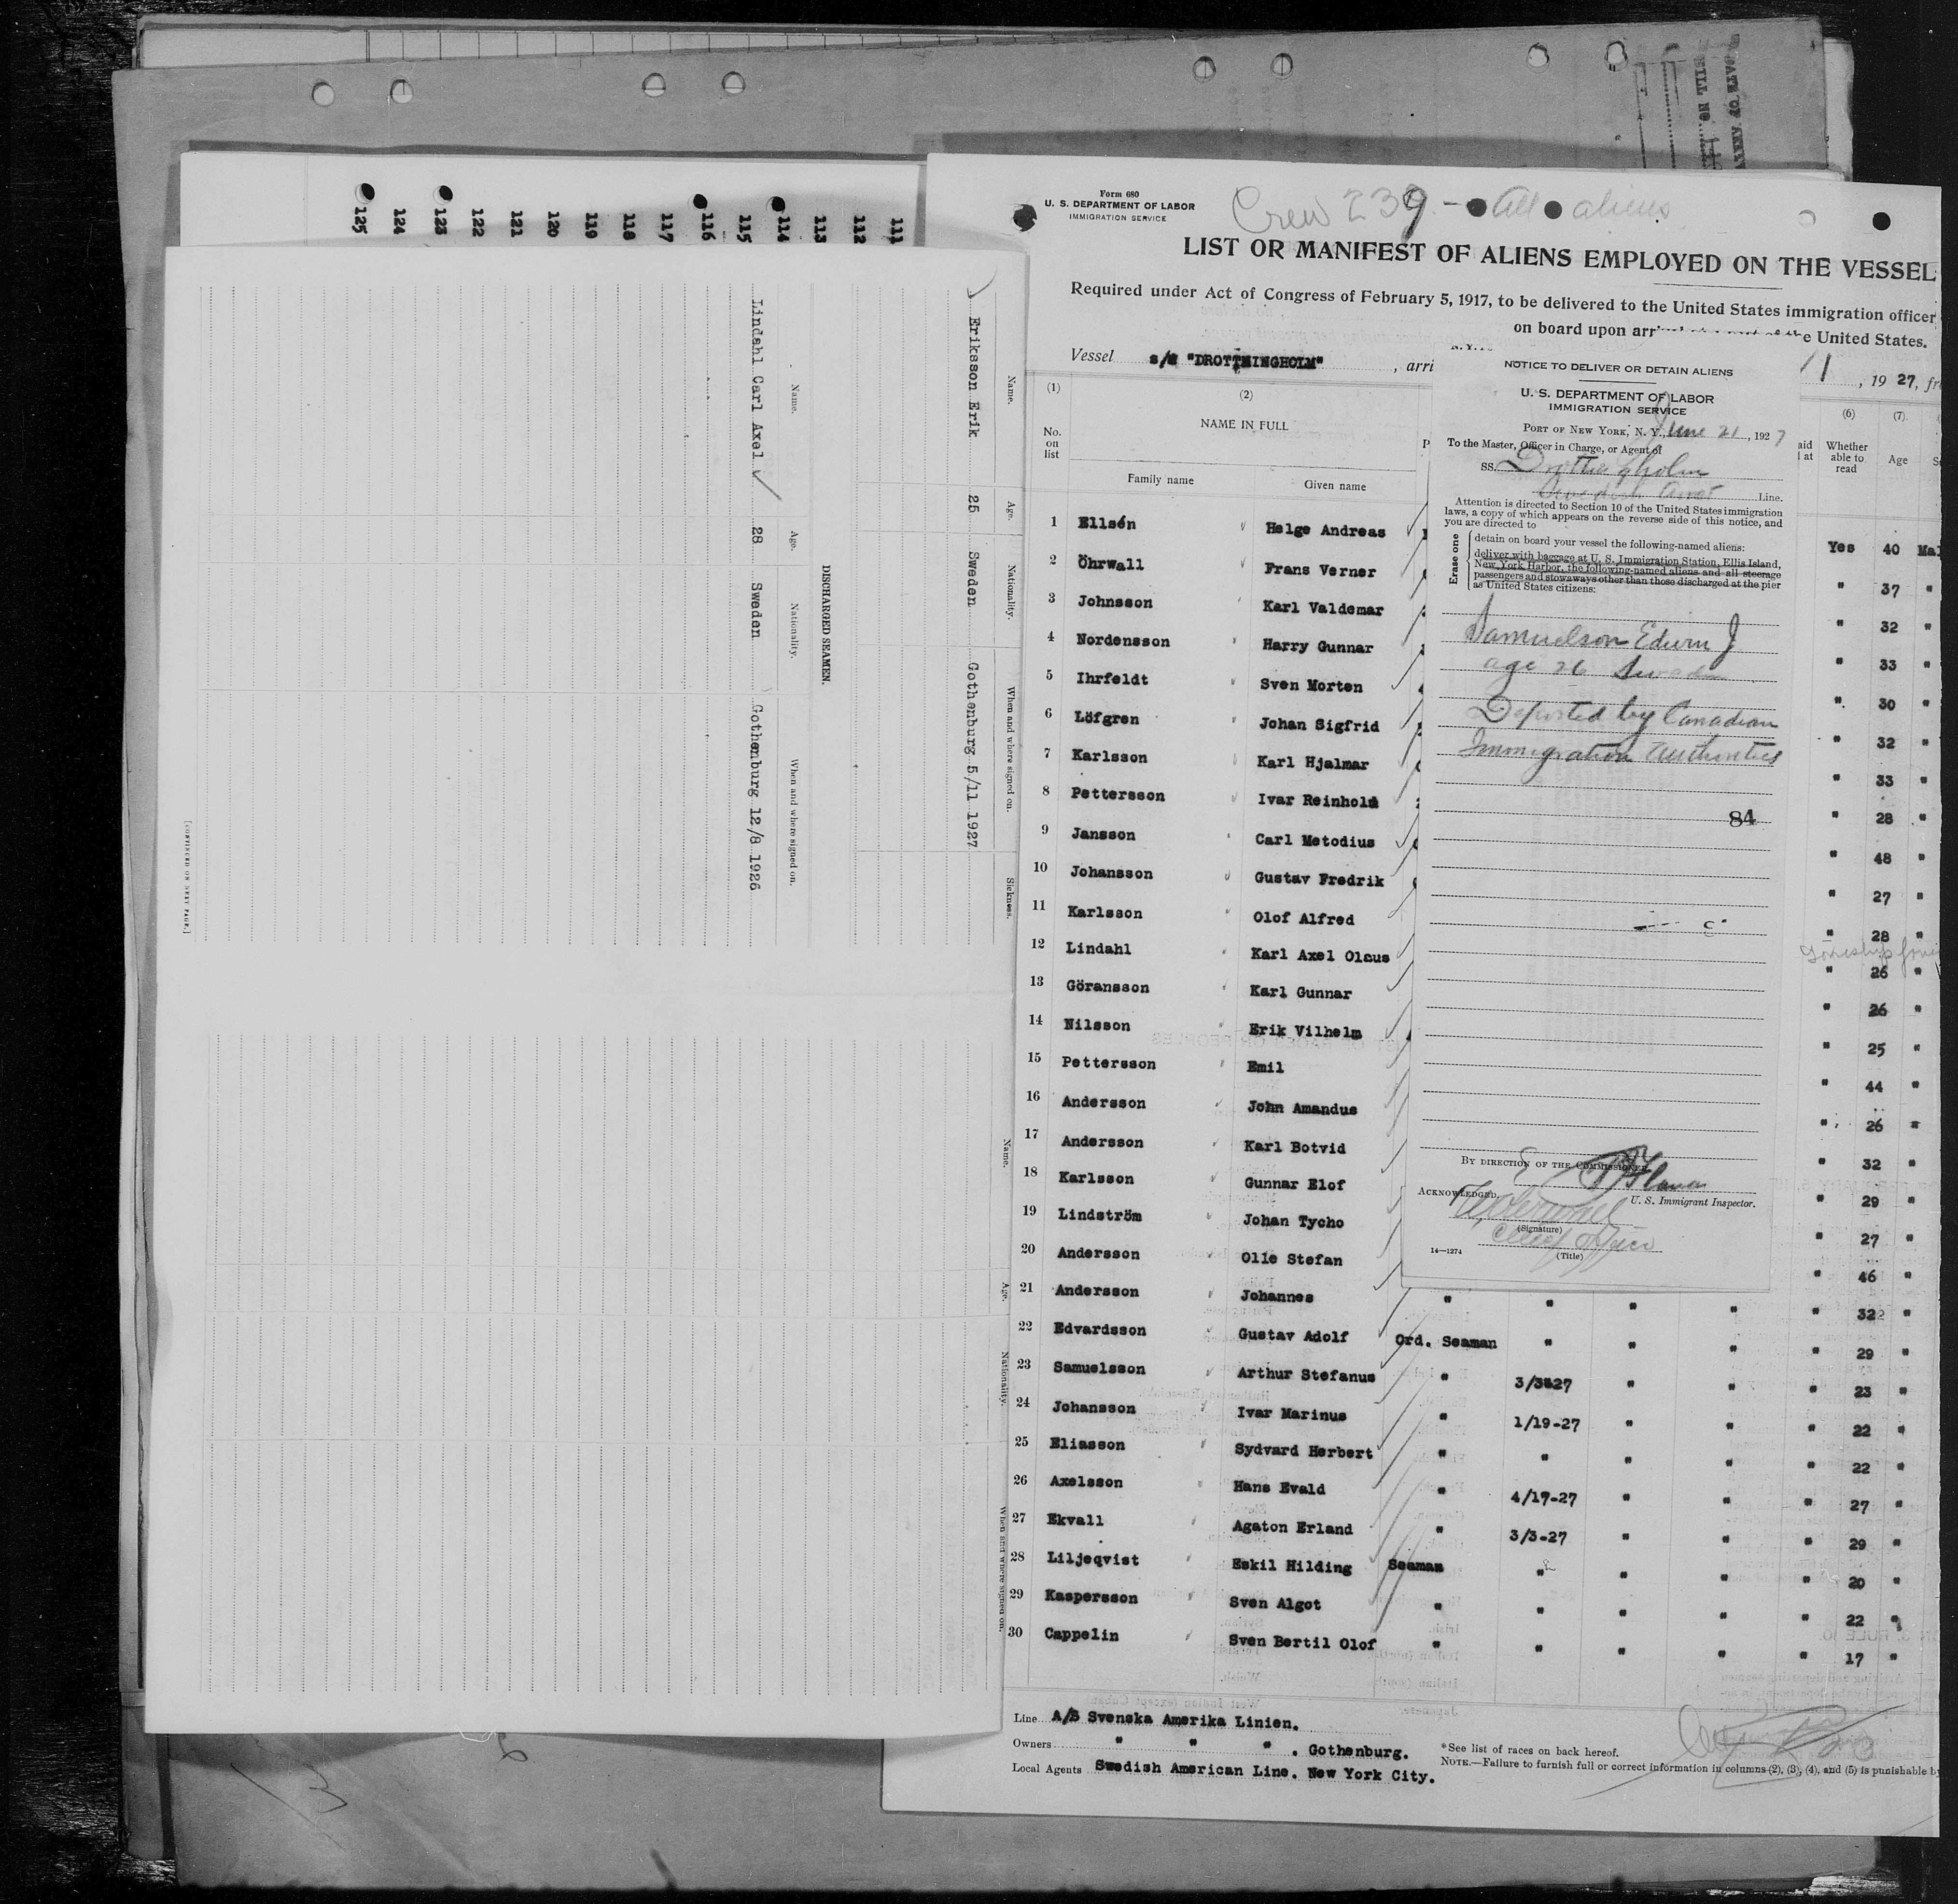 125 124 123 122 121 120 119 118 117 116 115 114 113 112 111
Name. Age. Nationality. When and where signed on. Sickness.
Eriksson Erik 25 Sweden Gothenburg 5/11 1927
DISCHARGED SEAMEN.
Name. Age. Nationality. When and where signed on.
Lindahl Carl Axel ✓ 28 Sweden Gothenburg 12/8 1926
[CONTINUED ON NEXT PAGE.]
Name. Age. Nationality. When and where signed on.
Form 680
U. S. DEPARTMENT OF LABOR
IMMIGRATION SERVICE
Crew 239 - All aliens
LIST OR MANIFEST OF ALIENS EMPLOYED ON THE VESSEL
Required under Act of Congress of February 5, 1917, to be delivered to the United States immigration officer
on board upon arr the United States.
Vessel s/s "DROTTNINGHOLM", arri 11, 1927, fr
(1) (2) (6) (7)
No. on list NAME IN FULL Whether able to read Age
Family name Given name
1 Ellsén Helge Andreas Yes 40 Mal
2 Öhrwall Frans Verner " 37 "
3 Johnsson Karl Valdemar " 32 "
4 Nordensson Harry Gunnar " 33 "
5 Ihrfeldt Sven Morten " 30 "
6 Löfgren Johan Sigfrid " 32 "
7 Karlsson Karl Hjalmar " 33 "
8 Pettersson Ivar Reinhold " 28 "
9 Jansson Carl Metodius " 48 "
10 Johansson Gustav Fredrik " 27 "
11 Karlsson Olof Alfred " 28 "
12 Lindahl Karl Axel Olaus " 26 "
13 Göransson Karl Gunnar " 26 "
14 Nilsson Erik Vilhelm " 25 "
15 Pettersson Emil " 44 "
16 Andersson John Amandus " 26 "
17 Andersson Karl Botvid " 32 "
18 Karlsson Gunnar Elof " 29 "
19 Lindström Johan Tycho " 27 "
20 Andersson Olle Stefan " 46 "
21 Andersson Johannes " " " " " 32 "
22 Edvardsson Gustav Adolf Ord. Seaman " " " " 29 "
23 Samuelsson Arthur Stefanus " 3/3-27 " " " 23 "
24 Johansson Ivar Marinus " 1/19-27 " " " 22 "
25 Eliasson Sydvard Herbert " " " " " 22 "
26 Axelsson Hans Evald " 4/17-27 " " " 27 "
27 Ekvall Agaton Erland " 3/3-27 " " " 29 "
28 Liljeqvist Eskil Hilding Seaman " " " " 20 "
29 Kaspersson Sven Algot " " " " " 22 "
30 Cappelin Sven Bertil Olof " " " " " 17 "
Line A/B Svenska Amerika Linien.
Owners " " " . Gothenburg.
Local Agents Swedish American Line. New York City.
*See list of races on back hereof.
NOTE.—Failure to furnish full or correct information in columns (2), (3), (4), and (5) is punishable b
NOTICE TO DELIVER OR DETAIN ALIENS
U. S. DEPARTMENT OF LABOR
IMMIGRATION SERVICE
PORT OF NEW YORK, N. Y., June 21, 1927
To the Master, Officer in Charge, or Agent of
SS. Drottningholm
Swedish Amer Line.
Attention is directed to Section 10 of the United States immigration
laws, a copy of which appears on the reverse side of this notice, and
you are directed to
Erase one
detain on board your vessel the following-named aliens:
deliver with baggage at U. S. Immigration Station, Ellis Island,
New York Harbor, the following-named aliens and all steerage
passengers and stowaways other than those discharged at the pier
as United States citizens:
Samuelson Edwin J
age 26 Sweden
Deported by Canadian
Immigration Authorities
84
BY DIRECTION OF THE COMMISSIONER.
U. S. Immigrant Inspector.
ACKNOWLEDGED,
(Signature)
Chief Officer
(Title)
14—1274